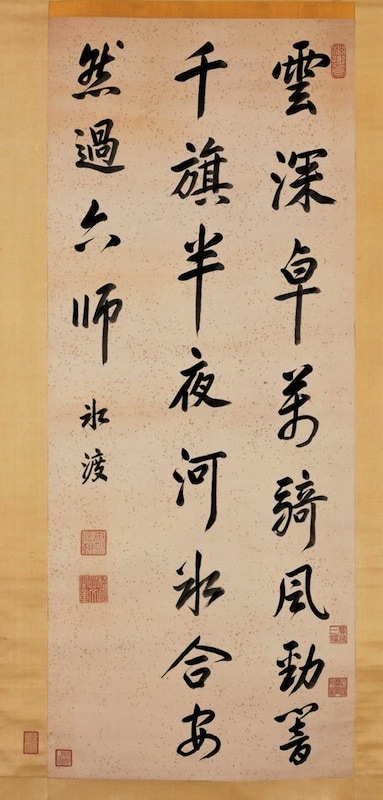 雲深卓萬騎風勁響
千旗半夜河冰合安
然過六師
冰渡